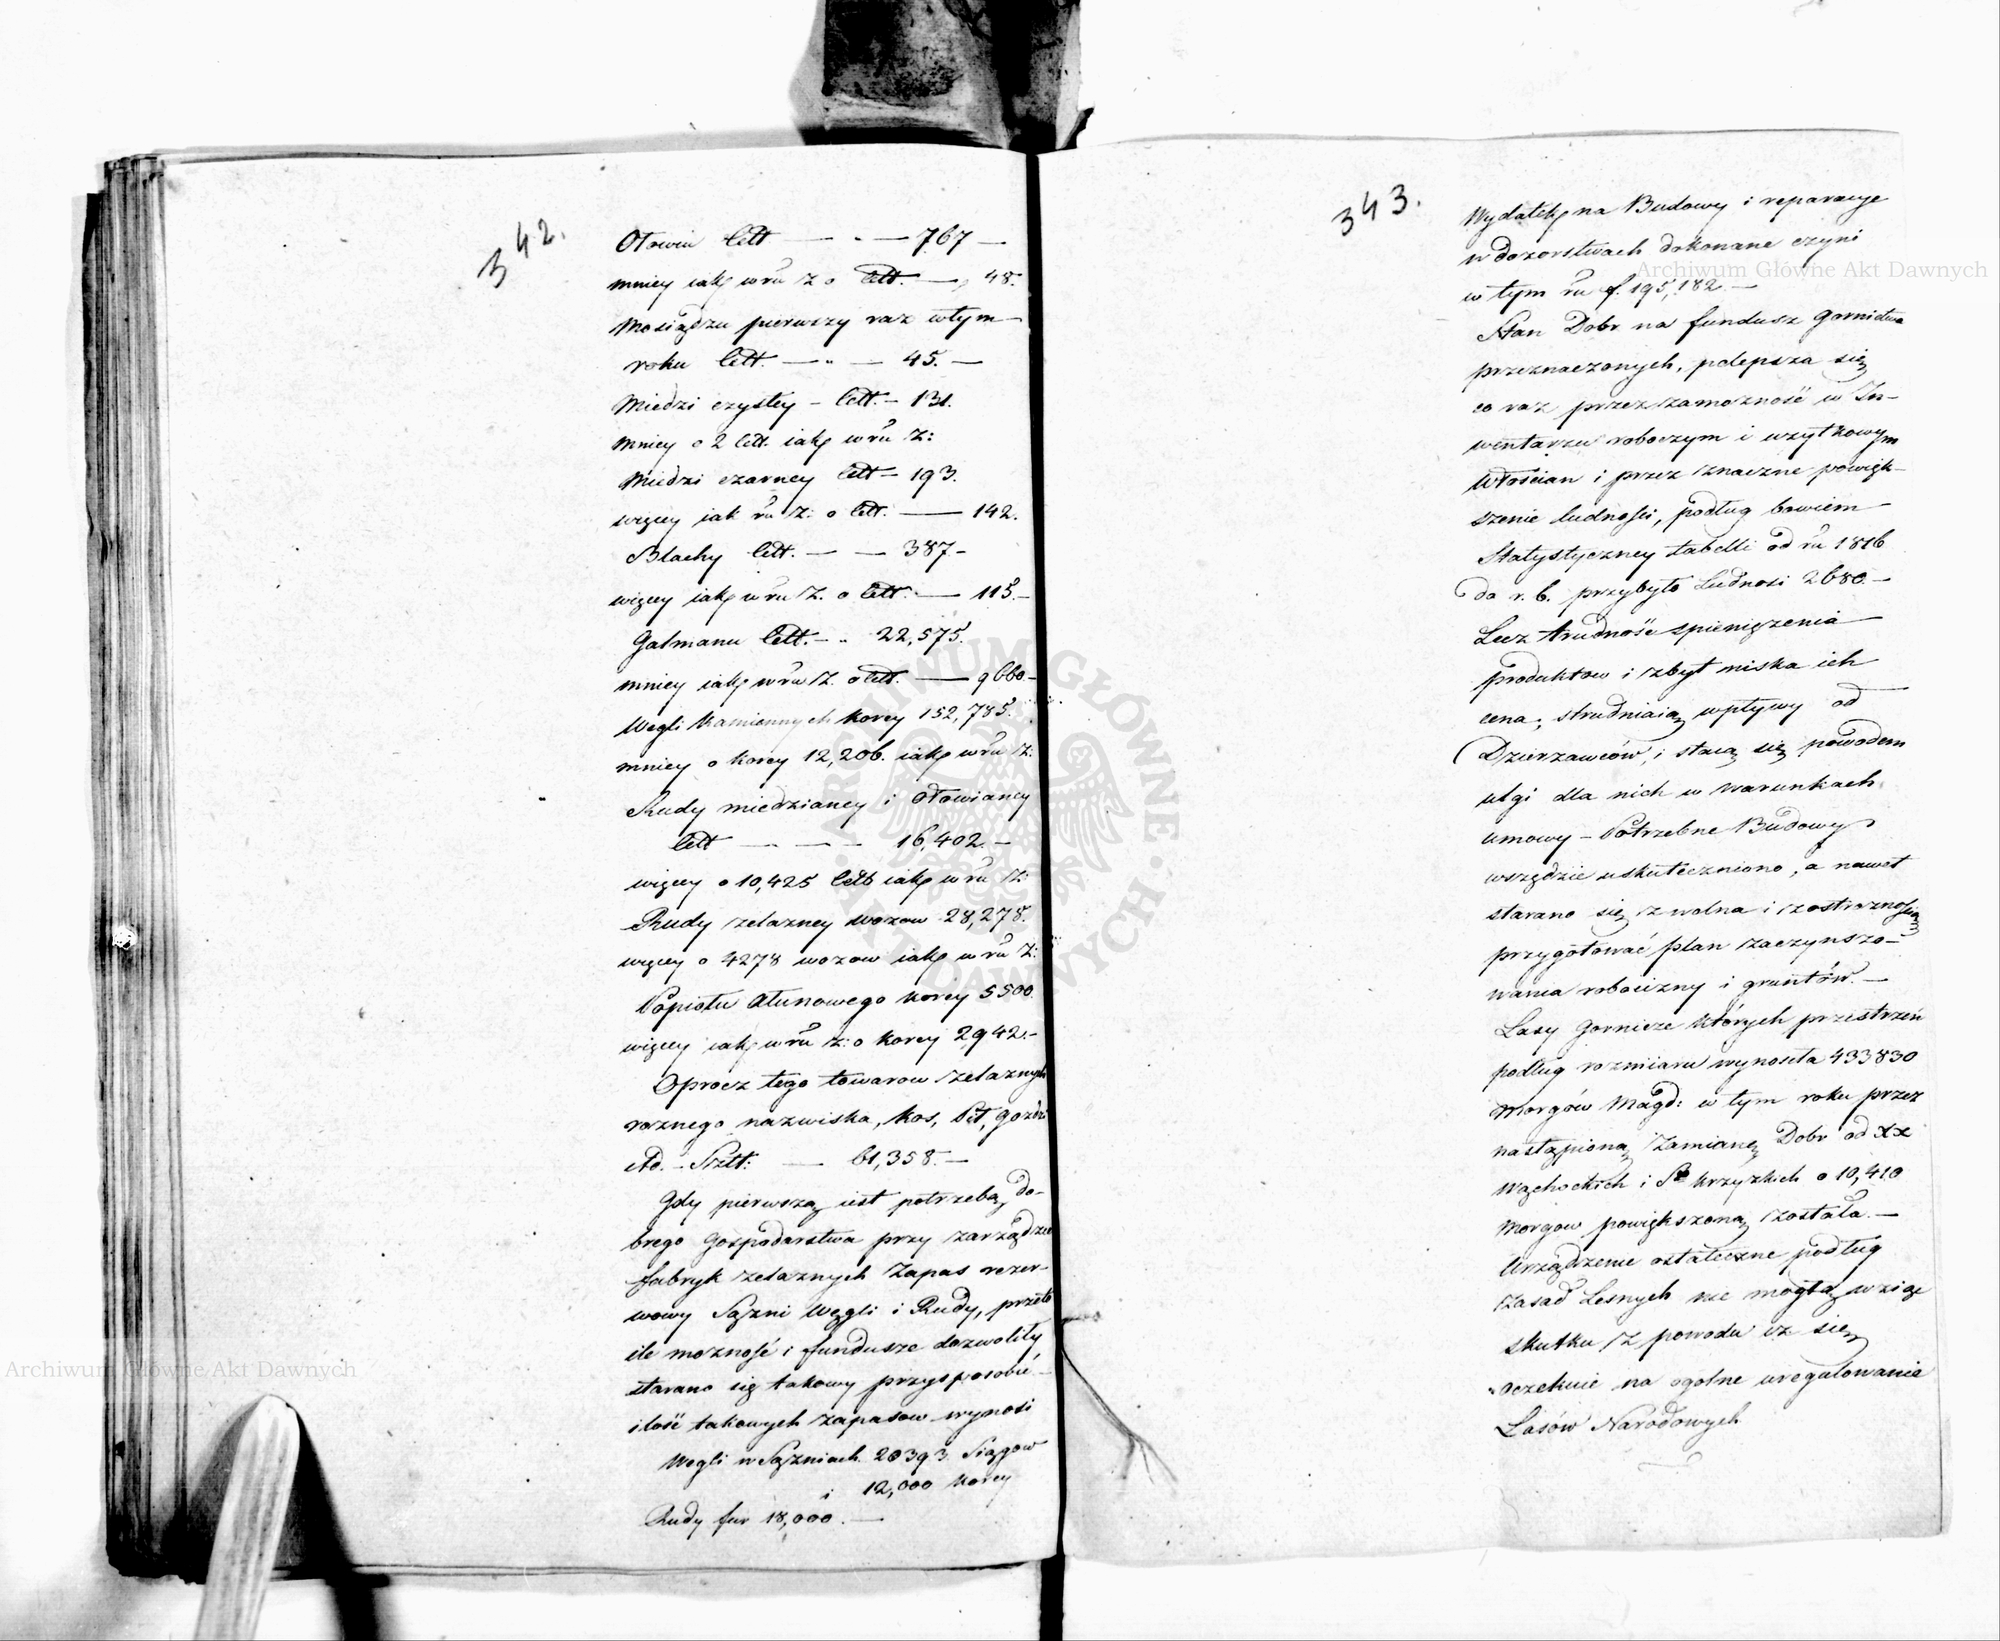 342.
Ołowiu Cett — „ — 767 —
mniey iak w ru z. o Cett. —, 48.
Mosiądzu pierwszy raz w tym
roku Cett. — „ — 45. —
Miedzi czystey – Cett. – 131.
mniey o 2 Cett. iak w ru z:
Miedzi czarney Cett – 193.
więcey iak ru z: o Cett. — 142.
Blachy Cett. — — 387 –
więcey iak w ru z. o Cett. — 115. –
Galmanu Cett. – „ 22,575.
mniey iak w ru z. o Cett. — 9660. –
Węgli Kamiennych korcy 152,785.
mniey o korcy 12,206. iak w ru z:
Rudy miedzianey i ołowianey
Cett — — — 16,402. –
więcey o 10,425 Cett iak w ru z:
Rudy żelazney wozow 28,278.
więcey o 4278 wozow iak w ru z:
Popiołu Ałunowego korcy 5500
więcey iak w ru z: o korcy 2942. –
Oprocz tego towarow żelaznych
roznego nazwiska, kos, Pił, gozdzi
etc. – Sztt: — 61,358. —
Gdy pierwszą iest potrzebą do-
brego Gospodarstwa przy zarządzie
fabryk żelaznych Zapas rezer-
wowy Sązni Węgli i Rudy, przeto
ile możność i fundusze dozwoliły
starano się takowy przysposobić –
ilość takowych zapasow wynosi
Węgli w Sązniach 20393 Siągow
i 12,000 korcy
Rudy fur 18,000. —
343.
Wydatek na Budowy i reparacye
w dozorstwach dokonane czyni
w tym ru f. 195,182. —
Stan Dobr na fundusz Gornictwa
przeznaczonych, polepsza się
co raz przez zamożność w In-
wentarzu roboczym i użytkowym
Włościan i przez znaczne powięk-
szenie ludności, podług bowiem
Statystyczney tabelli od ru 1816
do r. b. przybyło Ludnosi 2680. –
Lecz trudność spieniężenia
produktow i zbyt niska ich
cena, utrudniaią wpływy od
Dzierzawców, i staią się powodem
ulgi dla nich w warunkach
umowy – Potrzebne Budowy
wszędzie uskuteczniono, a nawet
starano się z wolna i z ostroznością
przygotować plan zaczynszo-
wania robocizny i gruntów. —
Lasy Gornicze których przestrzeń
podług rozmiaru wynosiła 433830
morgów Magd: w tym roku przez
nastąpioną Zamianę Dobr od XX
Wąchockich i St krzyzkich o 10,410
Morgow powiększoną została. —
Urządzenie ostateczne podług
zasad Lesnych nie mogło wziąć
skutku z powodu iż się
oczekuie na ogolne uregulowanie
Lasów Narodowych
Archiwum Główne Akt Dawnych
Archiwum Główne Akt Dawnych
ARCHIWUM GŁÓWNE · AKT DAWNYCH ·